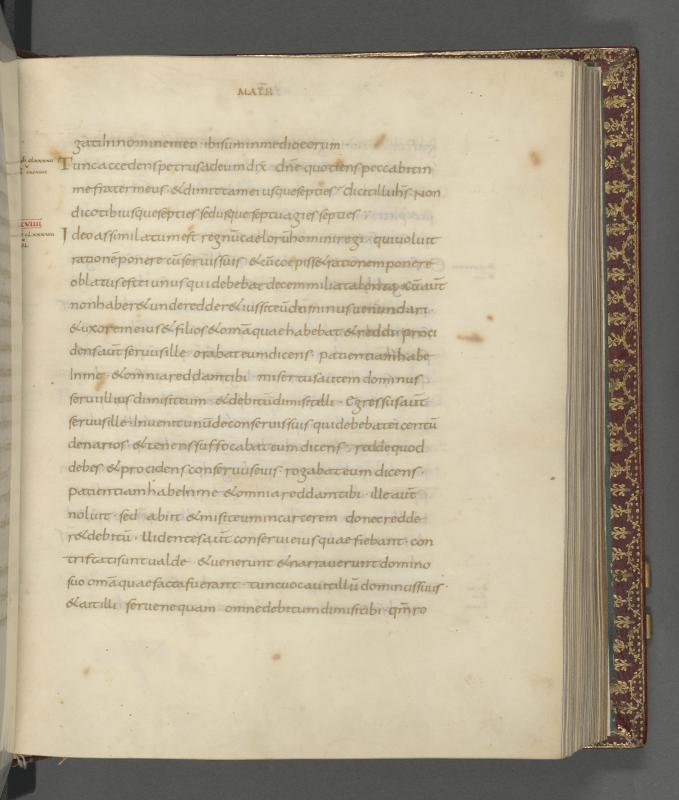 MATH
gati in nomine meo ibi sum in medio eorum
Tunc accedens petrus ad eum dix̄ dn̄e quotiens peccabit in
me frater meus & dimittam ei usque septies · dicit illi ih̄s Non
dico tibi usque septies sed usque septuagies septies
Ideo assimilatum est regnū caelorū homini regi · qui voluit
ratione ponere cū servis suis & cū coepiss& rationem ponere
oblatus est ei unus qui debebat decem milia talenta · cū aut̄
non haber& unde redder& iussit eū dominus venundari ·
& uxorem eius & filios & om̄a quae habebat & reddi · proci
dens aut̄ servus ille orabat eum dicens · patientiam habe
In me · & omnia reddam tibi misertus autem dominus
servi illius dimisit eum & debitū dimisit illi · Egressus aut̄
servus ille · Invenit unū de conservis suis qui debebat ei centū
denarios · & tenens suffocabat eum dicens · redde quod
debes & procidens conservus eius · rogabat eum dicens ·
patientiam habe In me & omnia reddam tibi · ille aut̄
noluit · sed abiit & misit eum in carcerem donec redde
r& debitū · Videntes aut̄ conservi eius quae fiebant · con
tristati sunt valde & venerunt & narraverunt domino
suo om̄a quae facta fuerant tunc vocavit illū dominus suus ·
& ait illi serve nequam omne debitum dimisi tibi · qm̄ ro